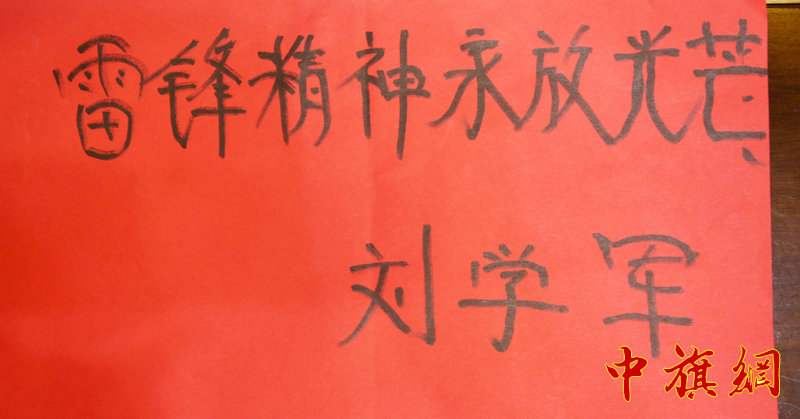 雷锋精神永放光芒、
刘学军
中旗網